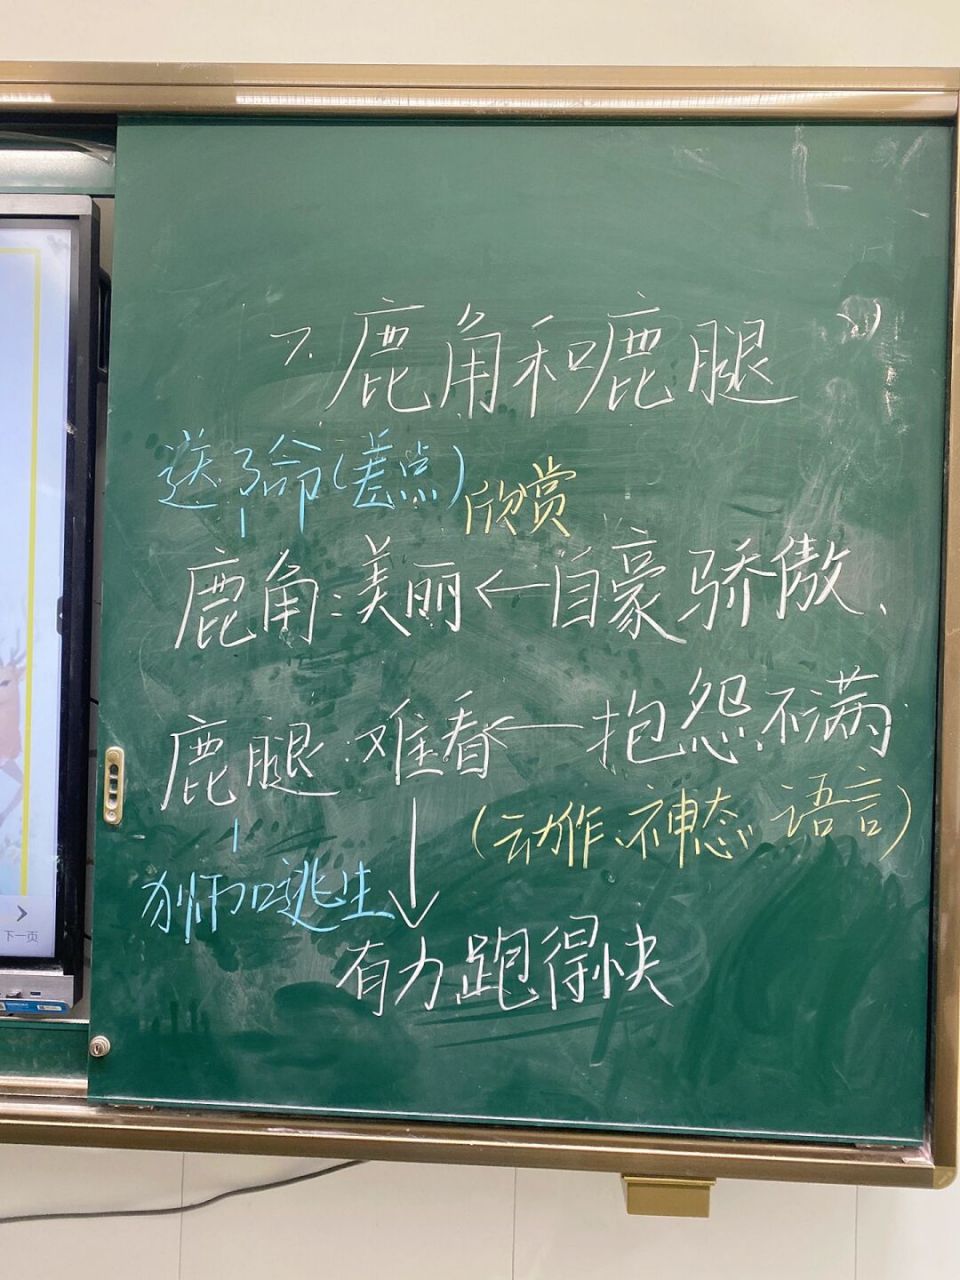 7.鹿角和鹿腿
送了命(差点)
欣赏
鹿角:美丽←自豪骄傲、
鹿腿:难看←抱怨、不满
(动作、神态、语言)
狮口逃生
有力跑得快
下一页